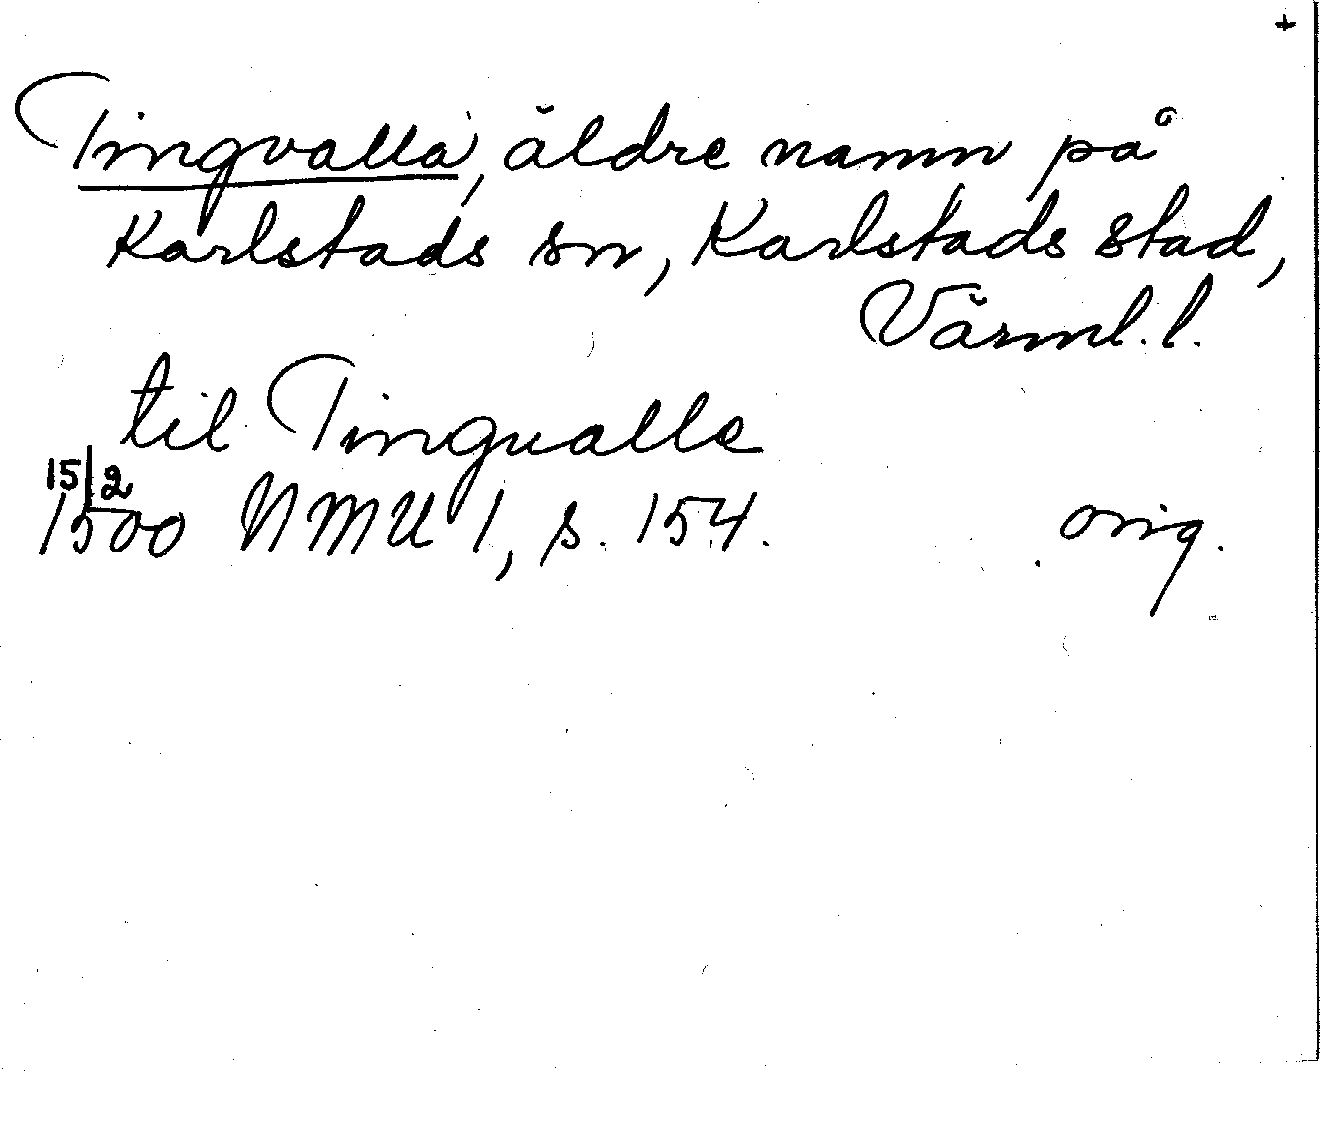 +
Tingvalla, äldre namn på
Karlstads sn, Karlstads stad,
Värml. l.
til Tingualla
15/2
1500 NMU 1, s. 154. orig.